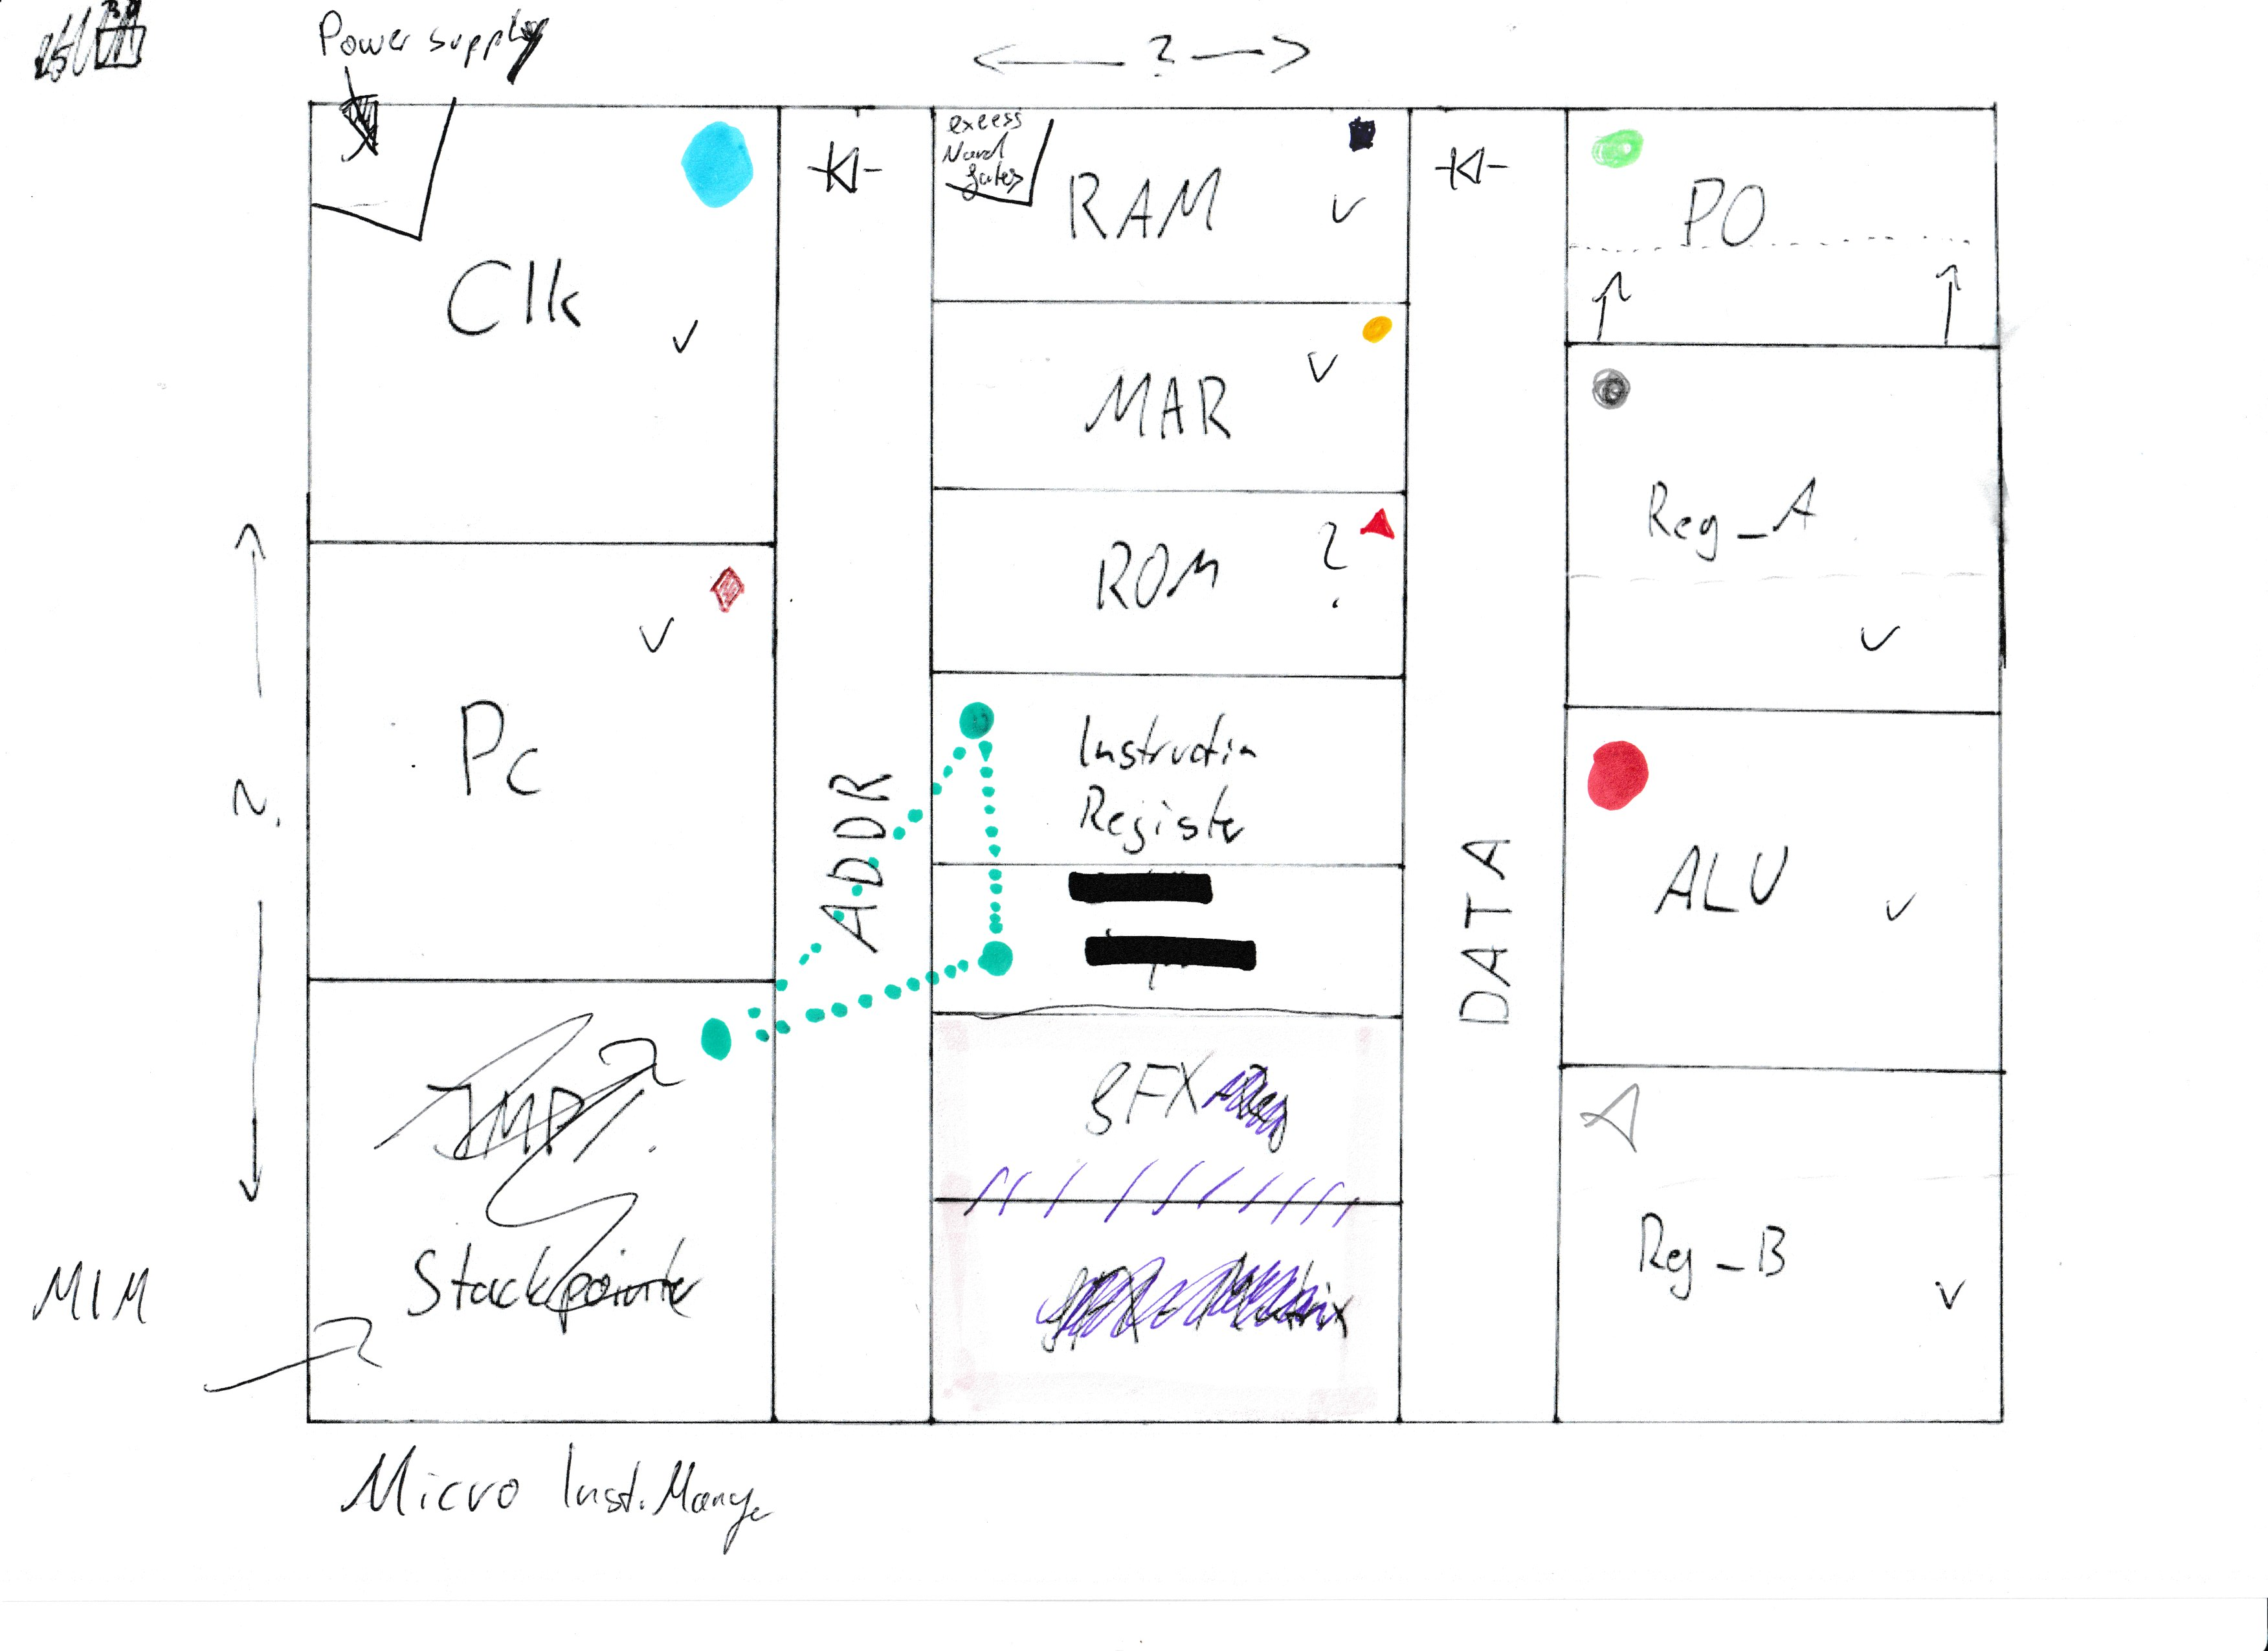 Power supply
?
Clk
Pc
?
Stackpointer
MIM
Micro Inst. Manage
ADDR
excess
Nand
gates
RAM
MAR
ROM
?
Instructin
Register
gFX
DATA
PO
Reg_A
ALU
Reg_B